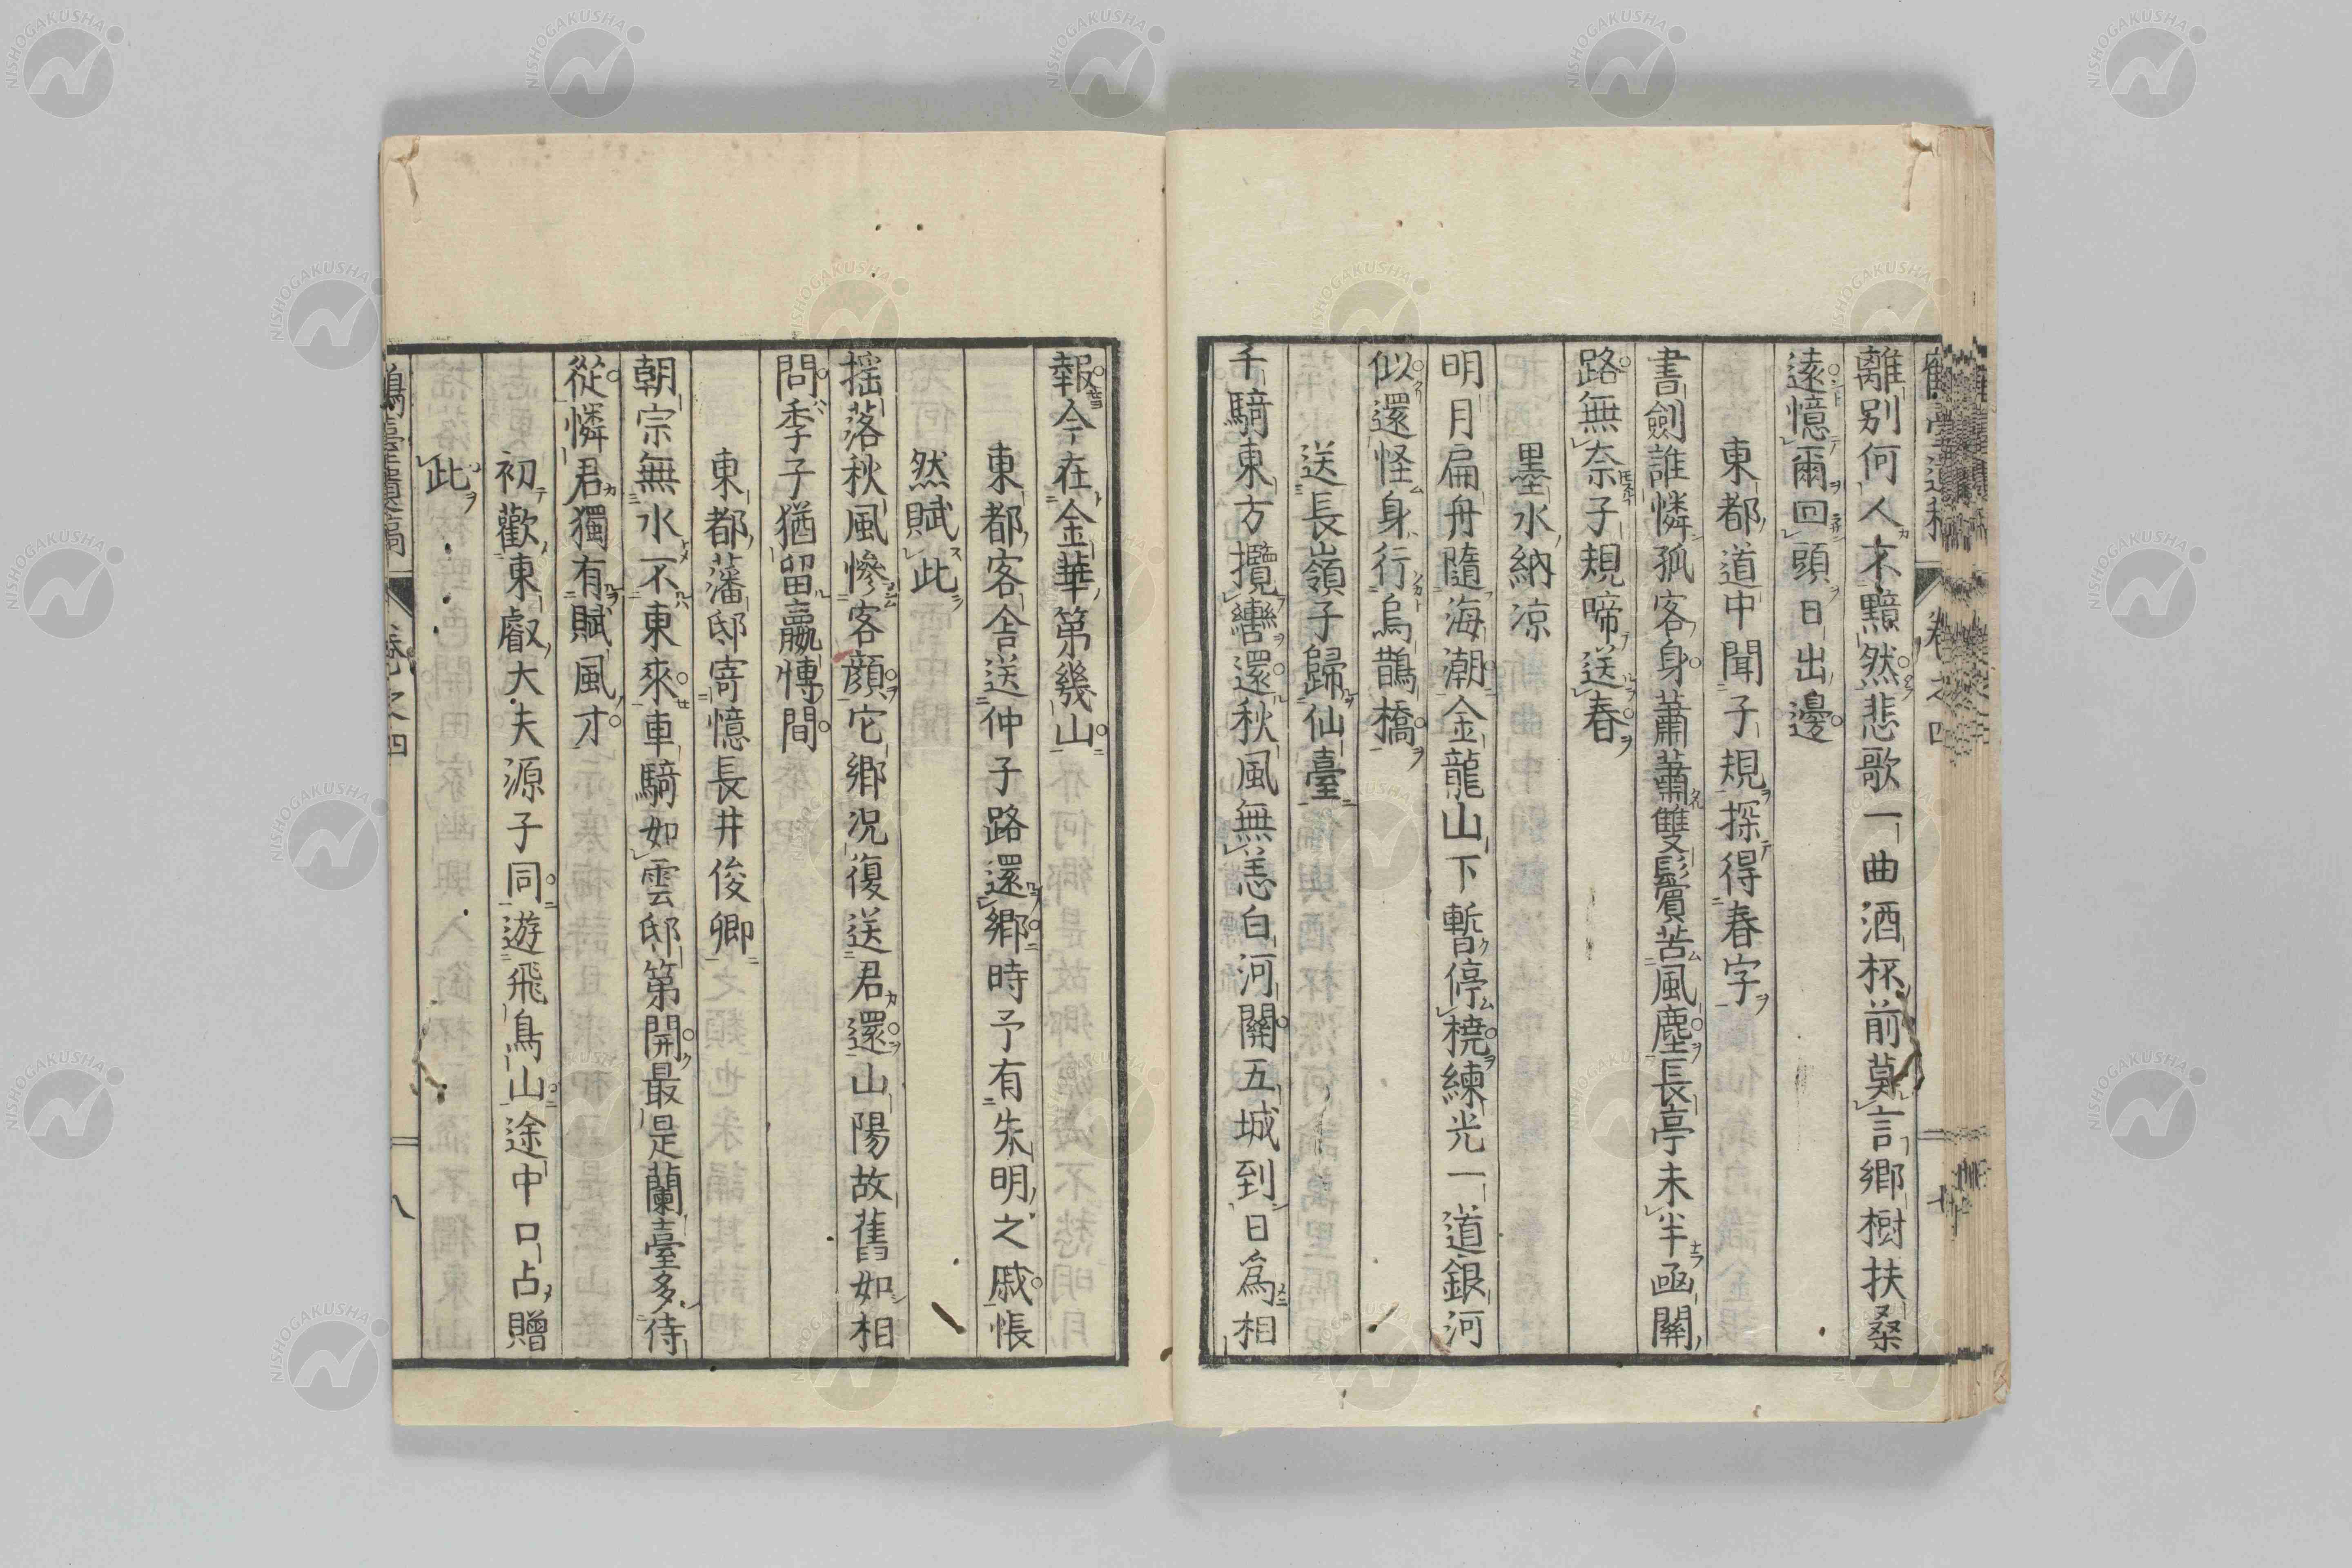 離別何人不黯然悲歌一曲酒杯前莫言郷樹扶桑
遠憶爾回頭日出邊
東都道中聞子規探得春字
書劍誰憐孤客身蕭蕭雙鬢苦風塵長亭未半凾關
路無奈子規啼送春
墨水納凉
明月扁舟隨海潮金龍山下暫停橈練光一道銀河
似還怪身行烏鵲橋
送長嶺子歸仙臺
千騎東方攬轡還秋風無恙白河關五城到日爲相
報今在金華第幾山
東都客舍送仲子路還郷時予有朱明之戚悵
然賦此
揺落秋風慘客顔它郷况復送君還山陽故舊如相
問季子猶留嬴慱間
東都藩邸寄憶長井俊卿
朝宗無水不東來車騎如雲邸第開最是蘭臺多侍
從憐君獨有賦風才
初歡東叡大夫源子同遊飛鳥山途中口占贈
此
鶴臺遺稿 卷之四 八
NISHOGAKUSHA